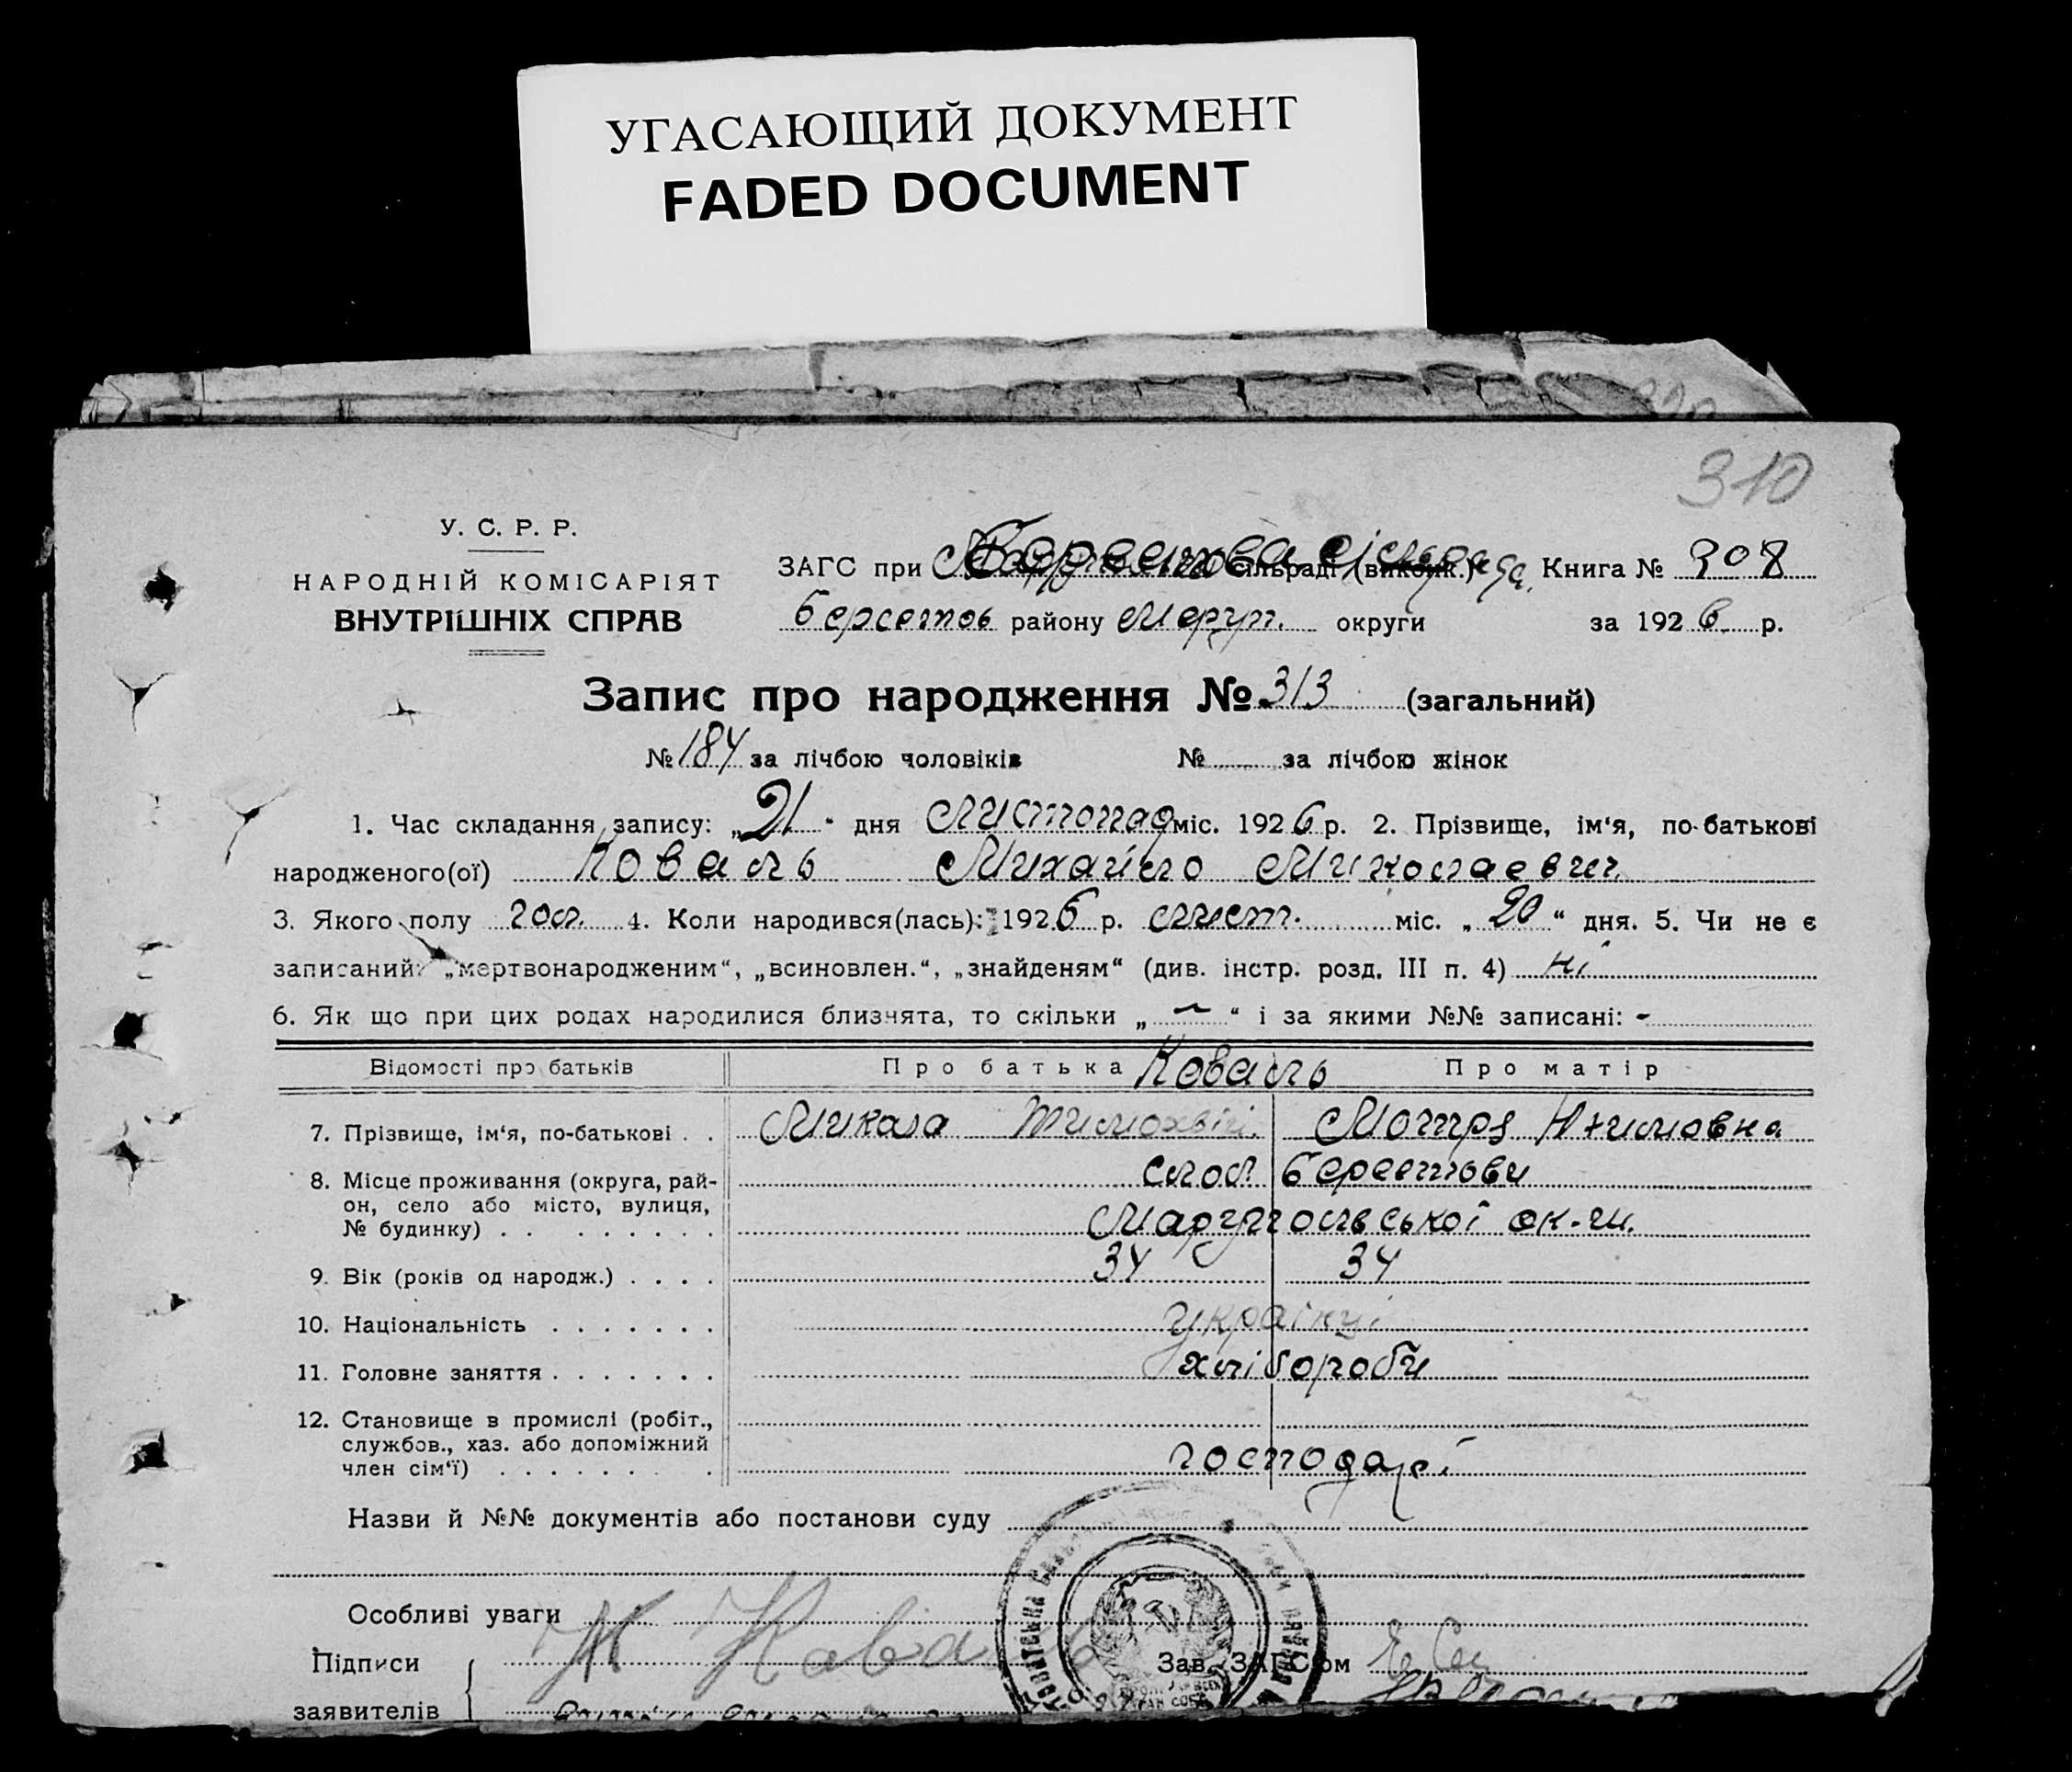 УГАСАЮЩИЙ ДОКУМЕНТ
FADED DOCUMENT
310
У. С. Р. Р.
НАРОДНІЙ КОМІСАРІЯТ
ВНУТРІШНІХ СПРАВ
ЗАГС при сільраді (виконк.) Книга № 308
Берестов району Маріуп. округи за 1926 р.
Запис про народження № 313 (загальний)
№ 184 за лічбою чоловіків № за лічбою жінок
1. Час складання запису: „21“ дня Листопад міс. 1926 р. 2. Прізвище, ім‘я, по-батькові
народженого(ої) Коваль Михайло Миколаевич
3. Якого полу чол. 4. Коли народився(лась): 1926 р. лист. міс. „20“ дня. 5. Чи не є
записаний: „мертвонародженим“, „всиновлен.“, „знайденям“ (див. інстр. розд. III п. 4) ні
6. Як що при цих родах народилися близнята, то скільки „-“ і за якими №№ записані: -
Відомості про батьків Про батька Коваль Про матір
7. Прізвище, ім‘я, по-батькові . . Микола Тимохвій. Мотря
8. Місце проживання (округа, рай-
он, село або місто, вулиця,
№ будинку) . . . . . . . .
Берестови
ок-ги.
9. Вік (років од народж.) . . . . 34 34
10. Національність . . . . . . . українці
11. Головне заняття . . . . . . . хлібороби
12. Становище в промислі (робіт.,
службов., хаз. або допоміжний
член сім‘ї) . . . . . . . . господарі
Назви й №№ документів або постанови суду
Особливі уваги
Підписи
заявителів
Зав. ЗАГС‘ом